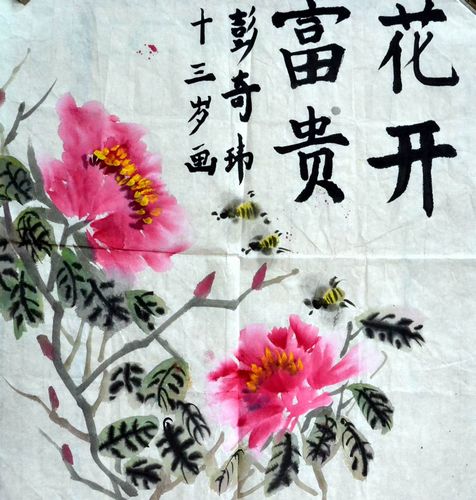 花开
富贵
彭奇玮
十三岁画